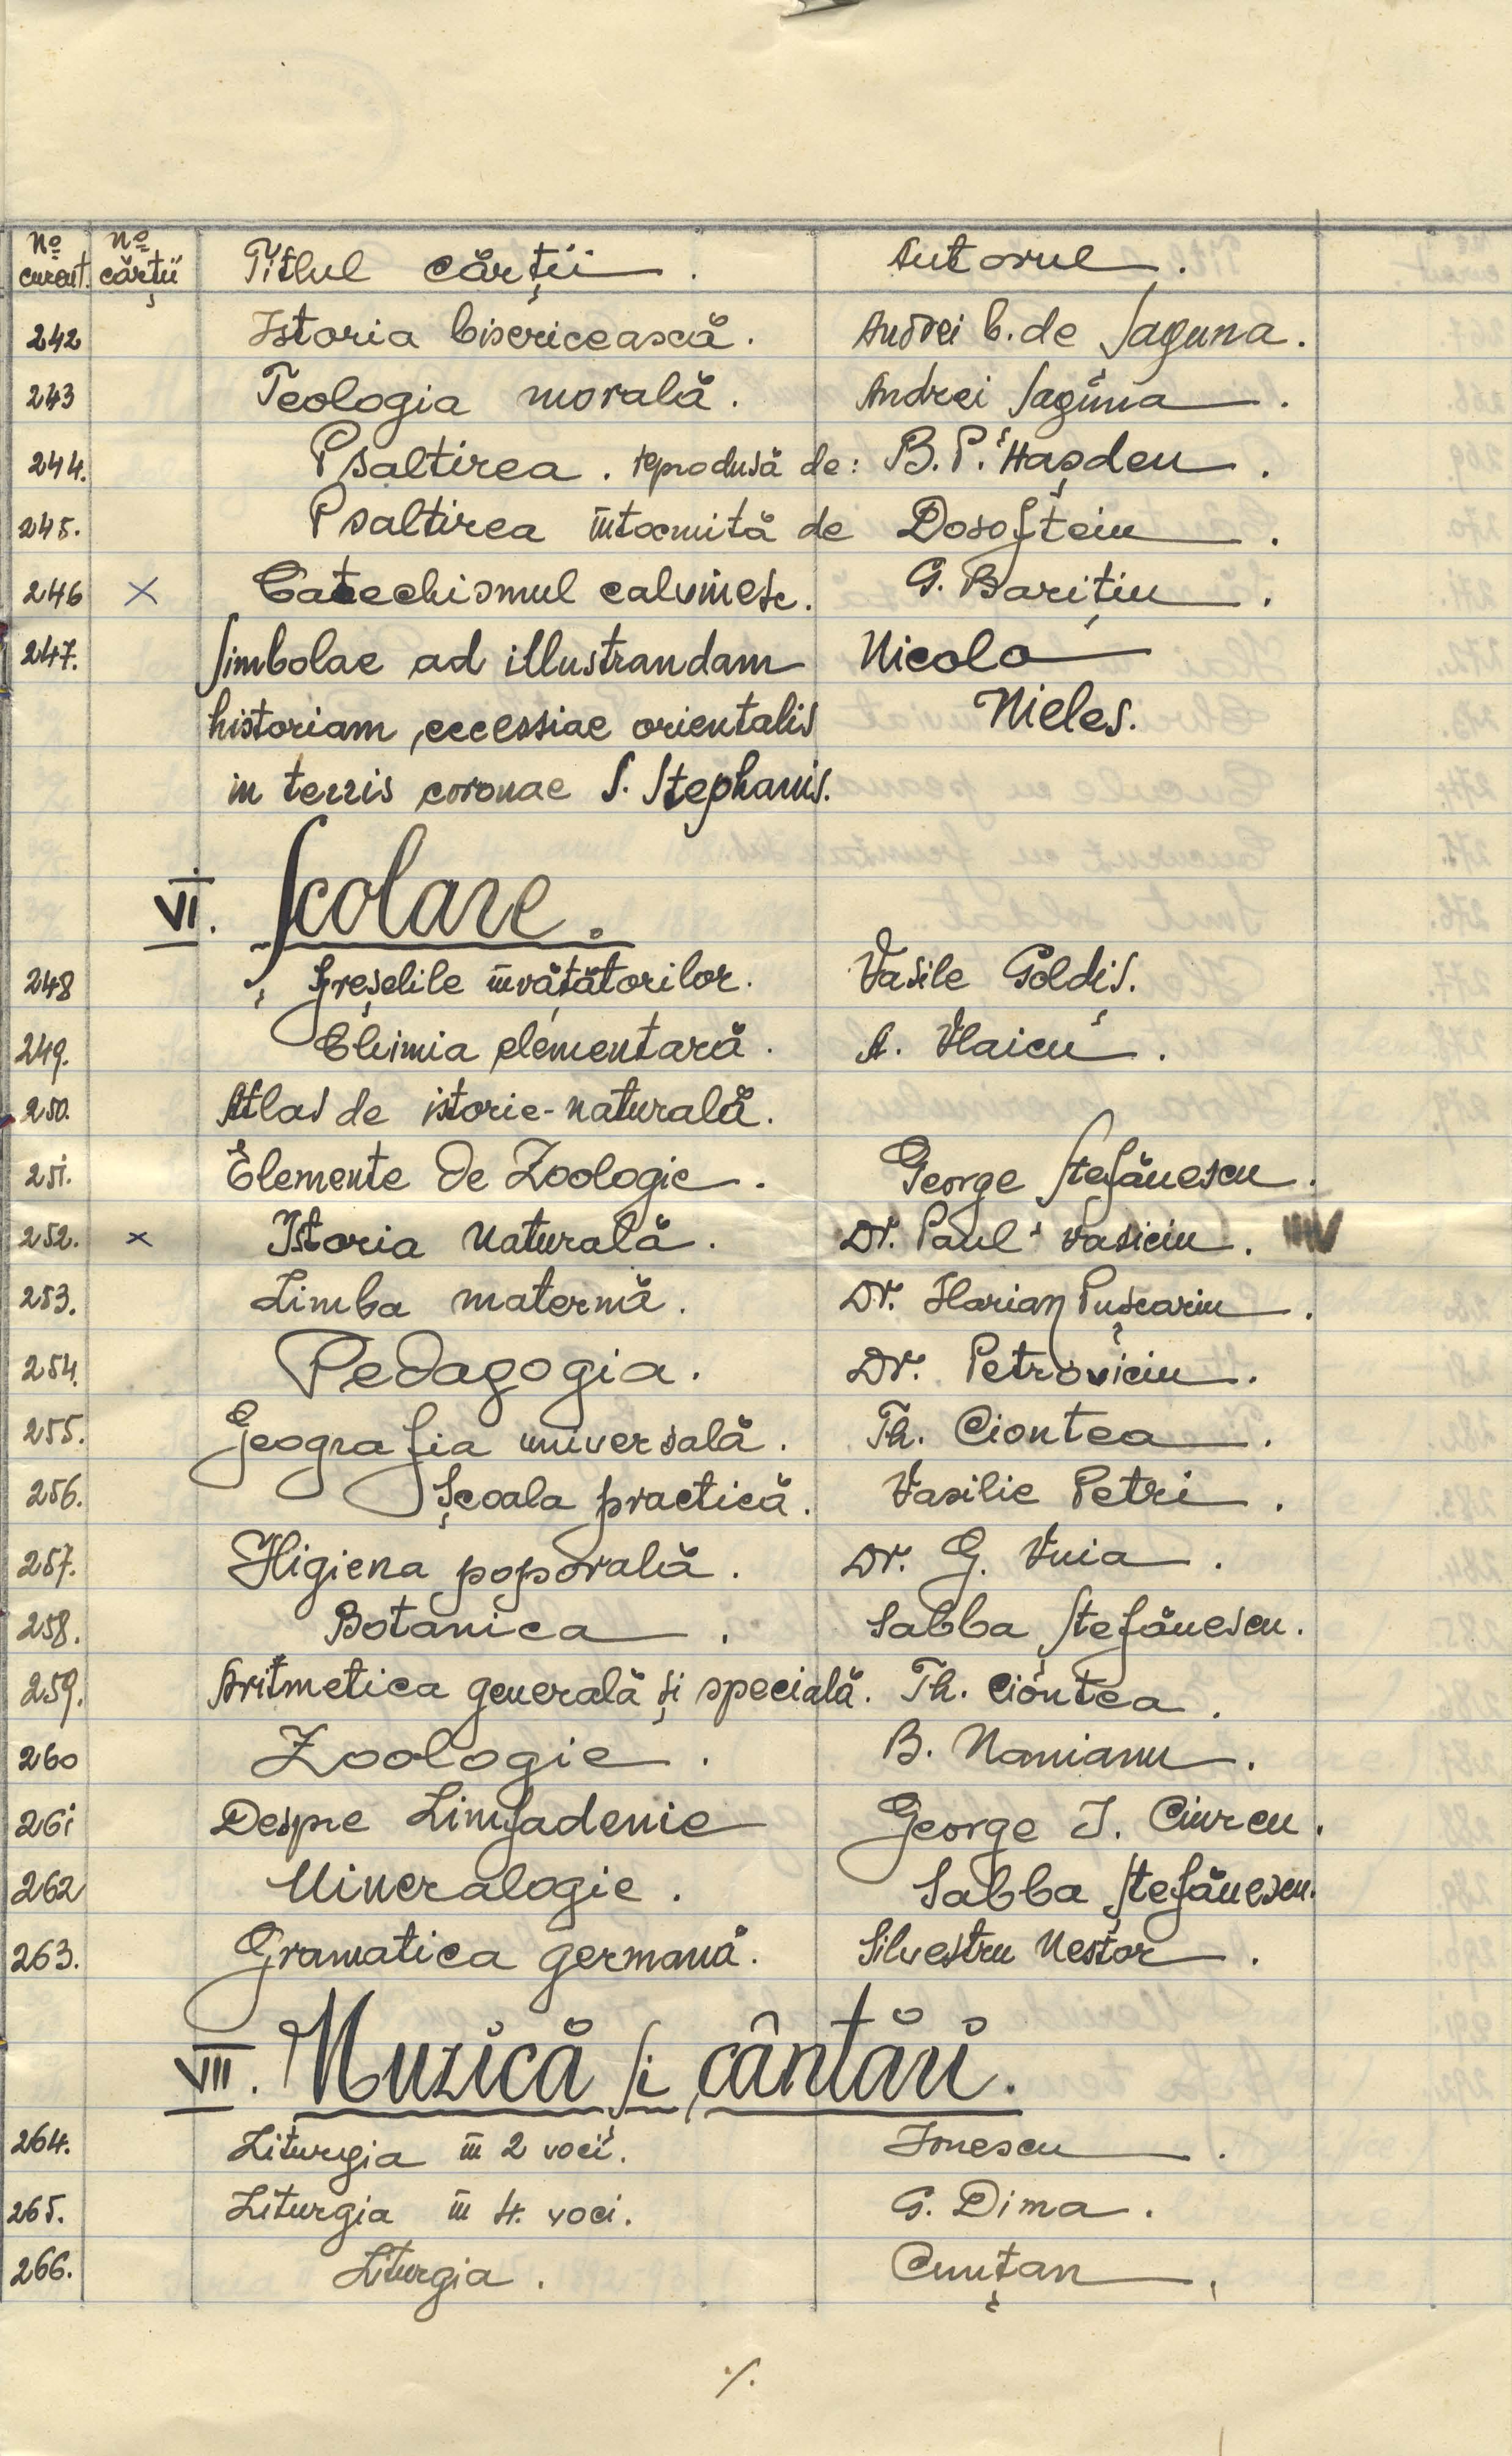 No curent. No cărții Titlul cărții. Autorul.
242 Istoria bisericească. Andrei b. de Șaguna.
243 Teologia morală. Andrei Șaguna.
244. Psaltirea. reprodusă de: B. P. Hașdeu.
245. Psaltirea întocmită de Dosofteiu.
246 X Catechismul calvinesc. G. Barițiu.
247. Simbolae ad illustrandam Nicolo
historiam eccessiae orientalis Nieles.
in terris coronae S. Stephanis.
VI. Școlare.
248 Greșelile învățătorilor. Vasile Goldiș.
249. Chimia elementară. A. Vlaicu.
250. Atlas de istorie-naturală.
251. Elemente de Zoologie. George Ștefănescu.
252. x Istoria naturală. Dr. Paul Vasiciu.
253. Limba maternă. Dr. Ilarian Pușcariu.
254. Pedagogia. Dr. Petroviciu.
255. Geografia universală. Th. Ciontea.
256. Școala practică. Vasilie Petri.
257. Higiena poporală. Dr. G. Vuia.
258. Botanica. Sabba Ștefănescu.
259. Aritmetica generală și specială. Th. Ciontea.
260 Zoologie. B. Nanianu.
261 Despre Limfadenie George I. Ciurcu.
262 Mineralogie. Sabba Ștefănescu.
263. Gramatica germană. Silvestru Nestor.
VII. Muzică și cântări.
264. Liturgia în 2 voci. Ionescu.
265. Liturgia în 4. voci. G. Dima.
266. Liturgia. Cunțan.
./.